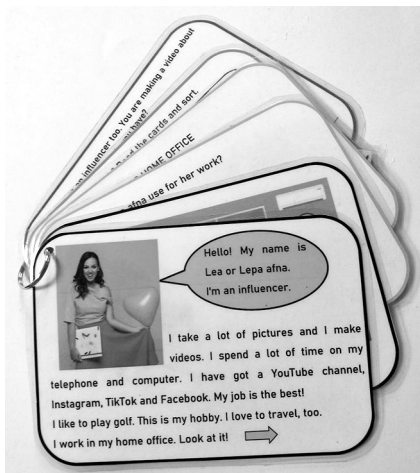 an influencer too. You are making a video about
you have?
Read the cards and sort.
HOME OFFICE
afna use for her work?
Hello! My name is
Lea or Lepa afna.
I'm an influencer.
I take a lot of pictures and I make
videos. I spend a lot of time on my
telephone and computer. I have got a YouTube channel,
Instagram, TikTok and Facebook. My job is the best!
I like to play golf. This is my hobby. I love to travel, too.
I work in my home office. Look at it!